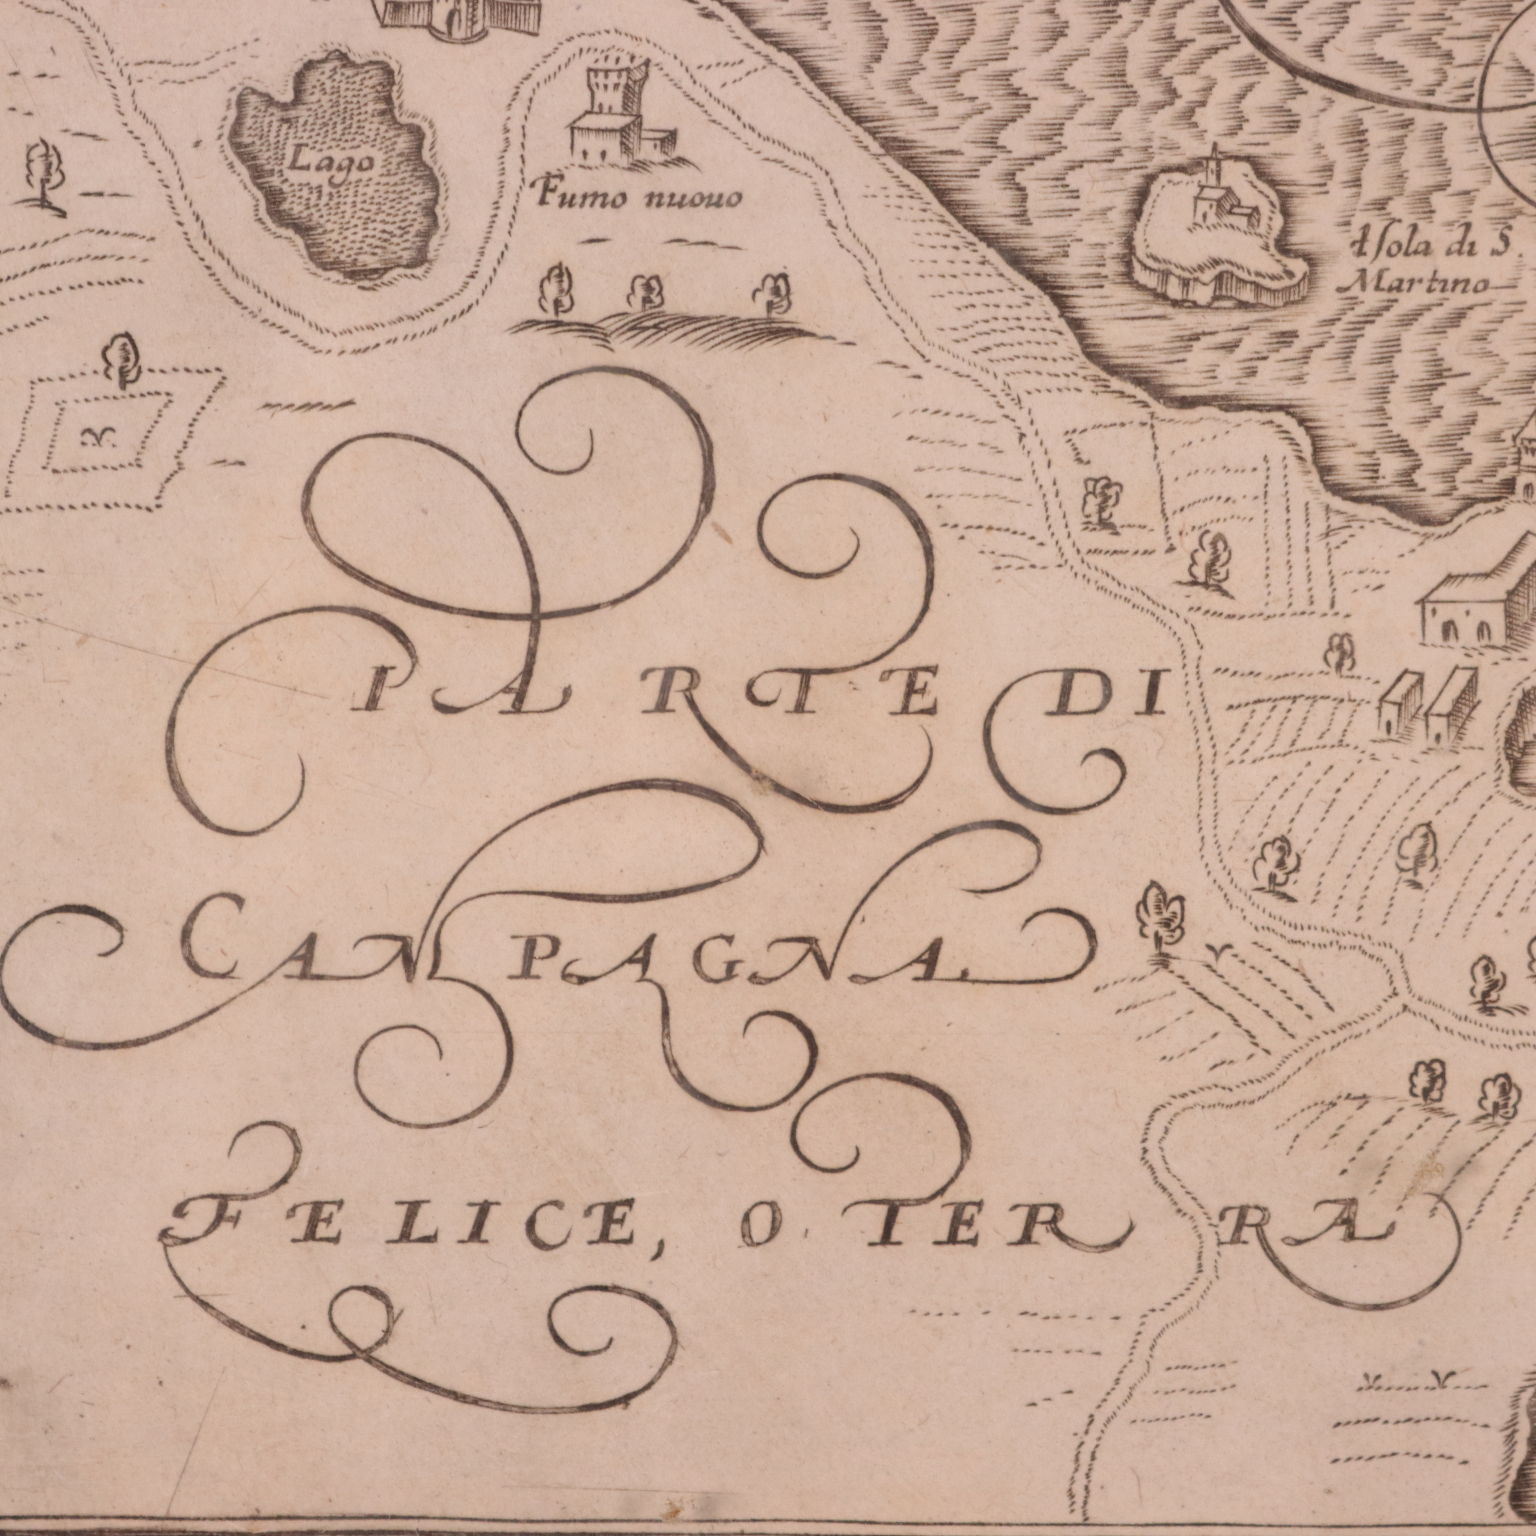 Lago
Fumo nuouo
Isola di S.
Martino
PARTE DI
CANPAGNA
FELICE, O TERRA